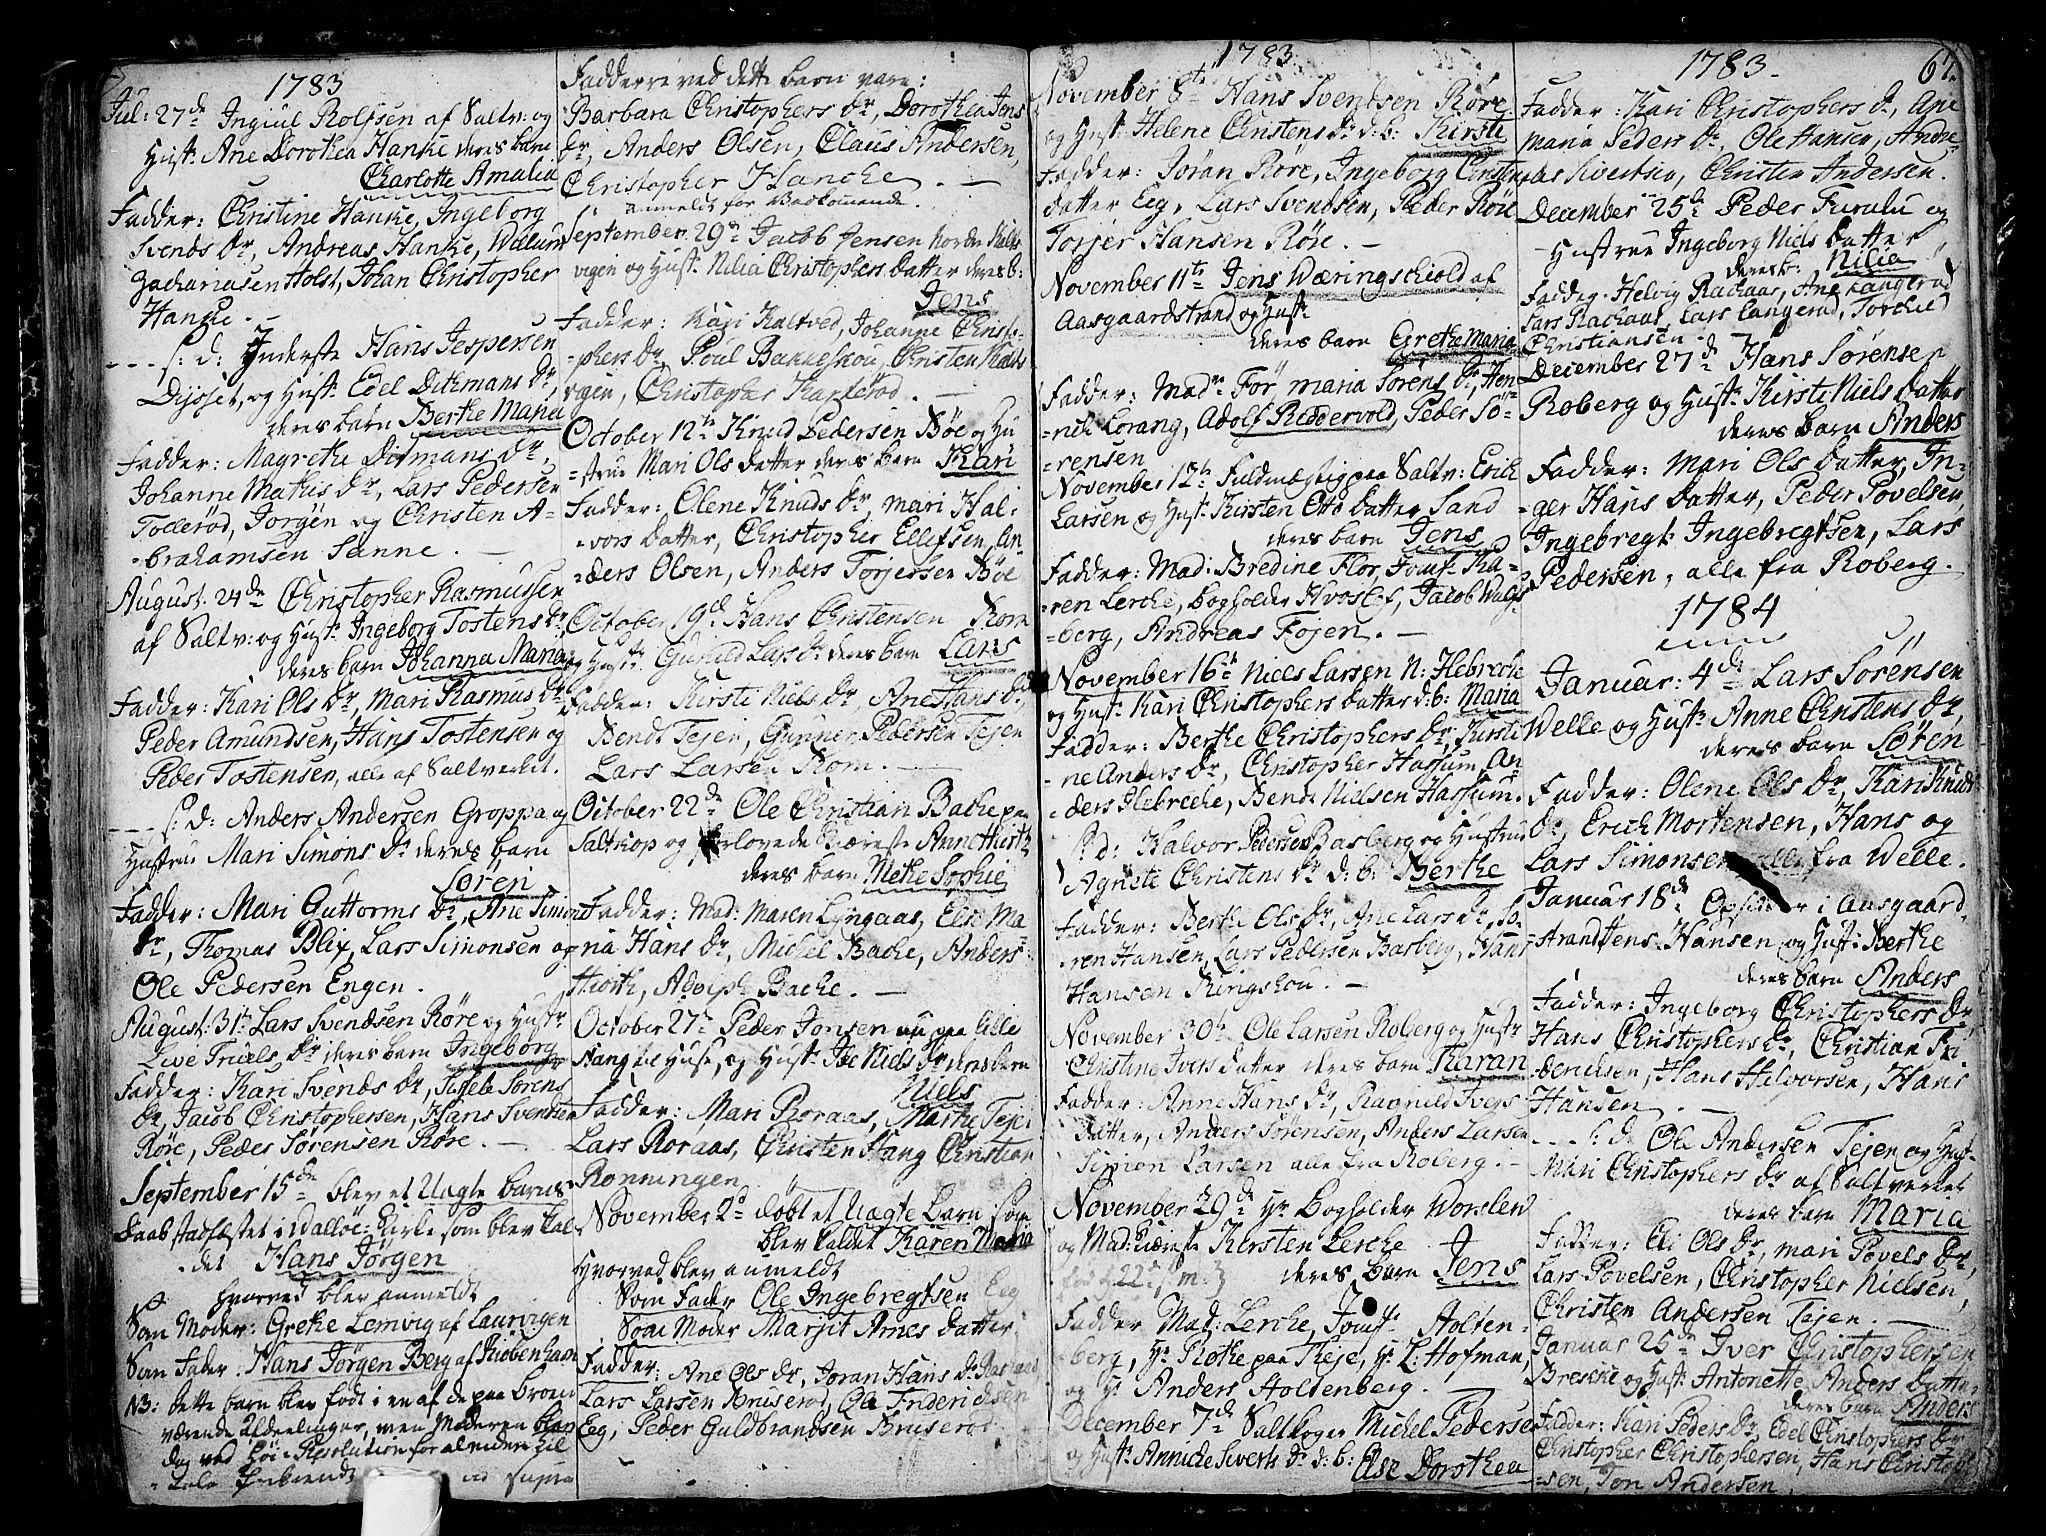 1783
Jul: 27de Ingiul Rolfsen af Saltv: og
Hust: Ane Dorothea Hanke deres barn
Charlotte Amalia
Fadder: Christine Hanke, Ingeborg
Svends Dr, Andreas Hanke, Willum
Zachariasen Holst, Johan Christopher
Hanke.
S: d: Inderste Hans Jespersen
Dysset, og Hust: Edel Ditkmans Dr,
deres barn Berthe Maria
Fadder: Magrethe Ditmans Dr,
Johanne Mathis Dr, Lars Pedersen
Tollerød, Jørgen og Christen A-
-brahamsen Sanne.
August: 24de Christopher Rasmussen
af Saltv: og Hust: Ingeborg Tostens Dr,
deres barn Johanna Maria
Fadder: Kari Ols Dr, Mari Rasmus Dr,
Peder Amundsen, Hans Tostensen og
Peder Tostensen, alle af Saltverket.
S: d: Anders Andersen Groppa og
Hustru Mari Simons Dr deres barn
Søren
Fadder: Mari Guttorms Dr, Ane Simons
Dr, Thomas Blix, Lars Simonsen og
Ole Pedersen Engen.
August: 31te Lars Svendsen Røre og Hustr
Live Truels Dr deres barn Ingeborg
Fadder: Kari Svends Dr, Sørens
Dr, Jacob Christophersen, Hans Svendsen
Røre, Peder Sørensen Røre.
September 15de blev et Uægte barns
Daab stadfæstet i Vallöe Kirke som blev kal-
-det Hans Jörgen
Hvorved blev anmeldt
Som Moder: Grethe Lemvig af Laurvigen
Som Fader: Hans Jörgen Berg af Kiöbenhavn
NB: dette barn blev født i en af de paa Broen
værende Afdeelinger, men Moderen
dog ved Höi Resolution for
Fadderne ved dette barn vare:
Barbara Christophers Dr, Dorothea Jens
Dr, Anders Olsen, Claus Andersen,
Christopher Hancke.
anmeldt for Vedkommende.
September 29de Jacob Jensen Nordre Skalle
vigen og Hust: Nilia Christophers Datter deres b:
Jens
Fadder: Kari Kaltved, Johanne Christo-
-phers Dr, Poul Bakkeskou, Christen Skalle
vigen, Christopher
October 12te Knud Pedersen Böe og Hu
-strue Mari Ols datter deres barn Kari
Fadder: Olene Knuds Dr, Mari Hal-
-vors Datter, Christopher Ellefsen, An-
-ders Olsen, Anders Torjersen Böe
October 19de Hans Christensen Rom
og Hustr: Gunild Lars Dr deres barn Lars
Fadder: Kirsti Niels Dr, Ane Hans Dr,
Bendt Tejen, Gunner Pedersen Tejen
Lars Larsen Rom.
October 22de Ole Christian Bache paa
Saltkop og forlovede Kiæreste Anne Hiorth
deres barn Methe Sophie
Fadder: Mad: Maren Lyngaas, Else Ma-
ria Hans Dr, Michel Bache, Anders
Hiorth, Adolph Bache.
October 27de Peder Jonsen nu paa lille
Nang, og Hust: Ide Niels Dr deres barn
Niels
Fadder: Mari Roraas, Marthe Teje
Lars Roraas, Christen Hang Christian
Rønningen
November 2de døbt et Uægte Barn som
blev kaldet Karen Maria
Hvorved blev anmeldt
Som Fader Ole Ingebregtsen Eeg
Som Moder Margit Arnes datter
Fadder: Ane Ols Dr, Joran Hans Dr
Lars Larsen Bruserød, Ole Fredericksen
Eeg, Peder Guldbrandsen Bruserød
1783
November 8te Hans Svendsen Røre
og Hust: Helene Christens Dr d: b: Kirsti
Fadder: Jöran Röre, Ingeborg Christens
datter Eeg, Lars Svendsen, Peder Röre
Torjer Hansen Röre.
November 11te Jens Wæringschiold af
Aasgaardstrand og Hust:
deres barn Grethe Maria
Fadder: Madme För, Maria Sörens Dr, Hen-
-rich Lorang, Adolf Riddervold, Peder Sö-
-rensen
November 12te Fuldmægtig paa Saltv: Erich
Larsen og Hust: Kirsten Otto Datter Sand
deres barn Jens
Fadder: Mad: Bredine Flor, Jomf: Ka-
-ren Lerche, bogholder Hvoslef, Jacob
-berg, Andreas Föjen.
November 16te Niels Larsen N: Hlebreche
og Hust: Kari Christophers datter d: b: Maria
Fadder: Berthe Christophers Dr, Kirsti-
ne Anders Dr, Christopher Hassum, An-
ders Hlebreche, Bendt Nielsen Hassum.
S: d: Halvor Pedersen Basberg og Hustrue
Agnete Christens Dr d: b: Berthe
Fadder: Berthe Ols Dr, Ane Lars Dr, Sö-
ren Hansen, Lars Pedersen Basberg, Hans
Hansen Ringskou.
November 30te Ole Larsen Roberg og Hustr
Christine Ivers Datter deres barn Karan
Fadder: Anne Hans Dr, Ragnild Ivers
datter, Anders Sörensen, Anders Larsen
Simon Larsen alle fra Roberg.
November 29de Hr Bogholder Worslew
og Mad: Kiæreste Kirsten Lerche
deres barn Jens
Fadder Mad: Lerche, Jomfr Holten-
-berg, Hr Rothe paa Theje, Hr L: Hofman,
og Hr Anders Holtenberg.
December 7de Saltkoger Michel Pedersen
og Hust: Annicke Siverts Dr d: b: Else Dorothea
1783 67.
Fadder: Kari Christophers Dr, Ane
Maria Peders Dr, Ole Hansen, Andre-
as Sivertsen, Christen Andersen.
December 25de Peder Furulu og
Hustrue Ingeborg Niels Datter
deres b: Nilia
Fadder: Helvig Rachaas, Ane Langerød
Lars Rachaas, Lars Langerud, Torchil
Christiansen.
December 27de Hans Sørensen
Roberg og Hust: Kirsti Niels Datter
deres barn Anders
Fadder: Mari Ols Datter, In-
-ger Hans Datter, Peder Povelsen,
Ingebregt Ingebregtsen, Lars
Pedersen, alle fra Roberg.
1784
Januar: 4de Lars Sörensen
Welle og Hust: Anne Christens Dr,
deres barn Sören
Fadder: Olene Ols Dr, Kari Knuds
Dr, Erich Mortensen, Hans og
Lars Simonsen alle fra Welle.
Januar 18de Opsidder i Aasgaard-
strand Jens Hansen og Hust: Berthe
deres barn Anders
Fadder: Ingeborg Christophers Dr
Hans Christophers Dr, Christian Fri-
derichsen, Hans Halvorsen, Hans
Hansen.
S: d: Ole Andersen Tejen og Hust:
Mari Christophers Dr af Saltverket
deres barn Maria
Fadder: Eli Ols Dr, Mari Povels Dr,
Lars Povelsen, Christopher Nielsen,
Christen Andersen Tejen.
Januar 25de Iver Christophersen
Brekke og Hust: Antonette Anders Datter
deres barn Anders
Fadder: Kari Peders Dr, Edel Christophers Dr
Christopher Christophersen, Hans Christoph
-sen, Jon Andersen